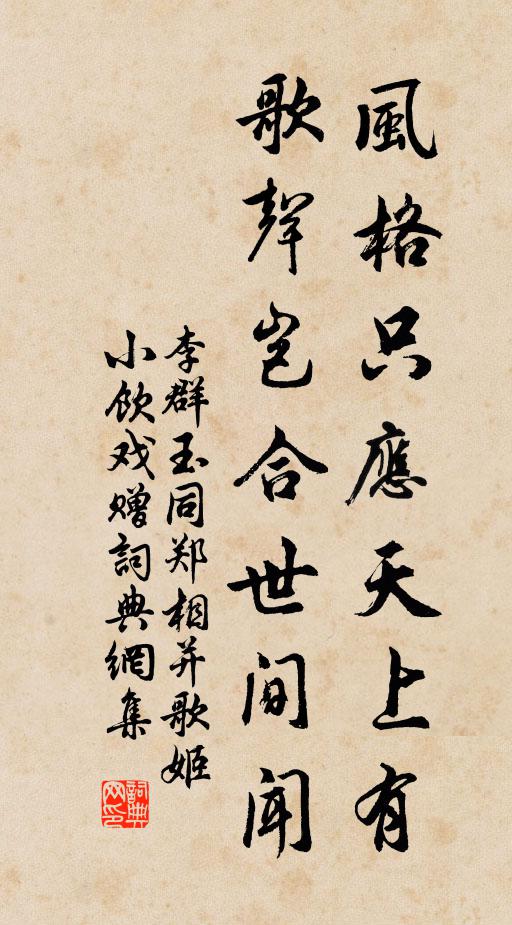 風格只應天上有
歌聲豈合世間聞
李群玉同郑相并歌姬
小飲戏赠詞典網集
詞典
网印